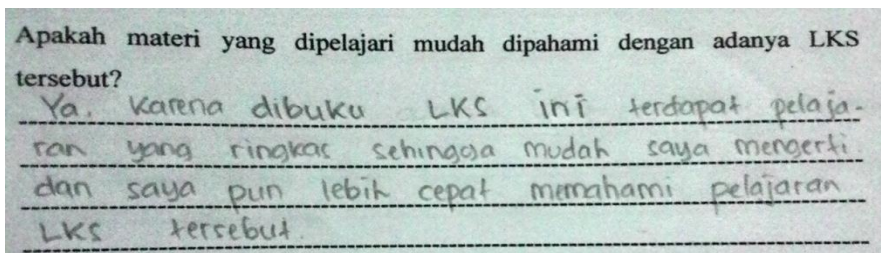 Apakah materi yang dipelajari mudah dipahami dengan adanya LKS
tersebut?
Ya, karena dibuku LKS ini terdapat pelaja-
ran yang ringkas sehingga mudah saya mengerti
dan saya pun lebih cepat memahami pelajaran
LKS tersebut.